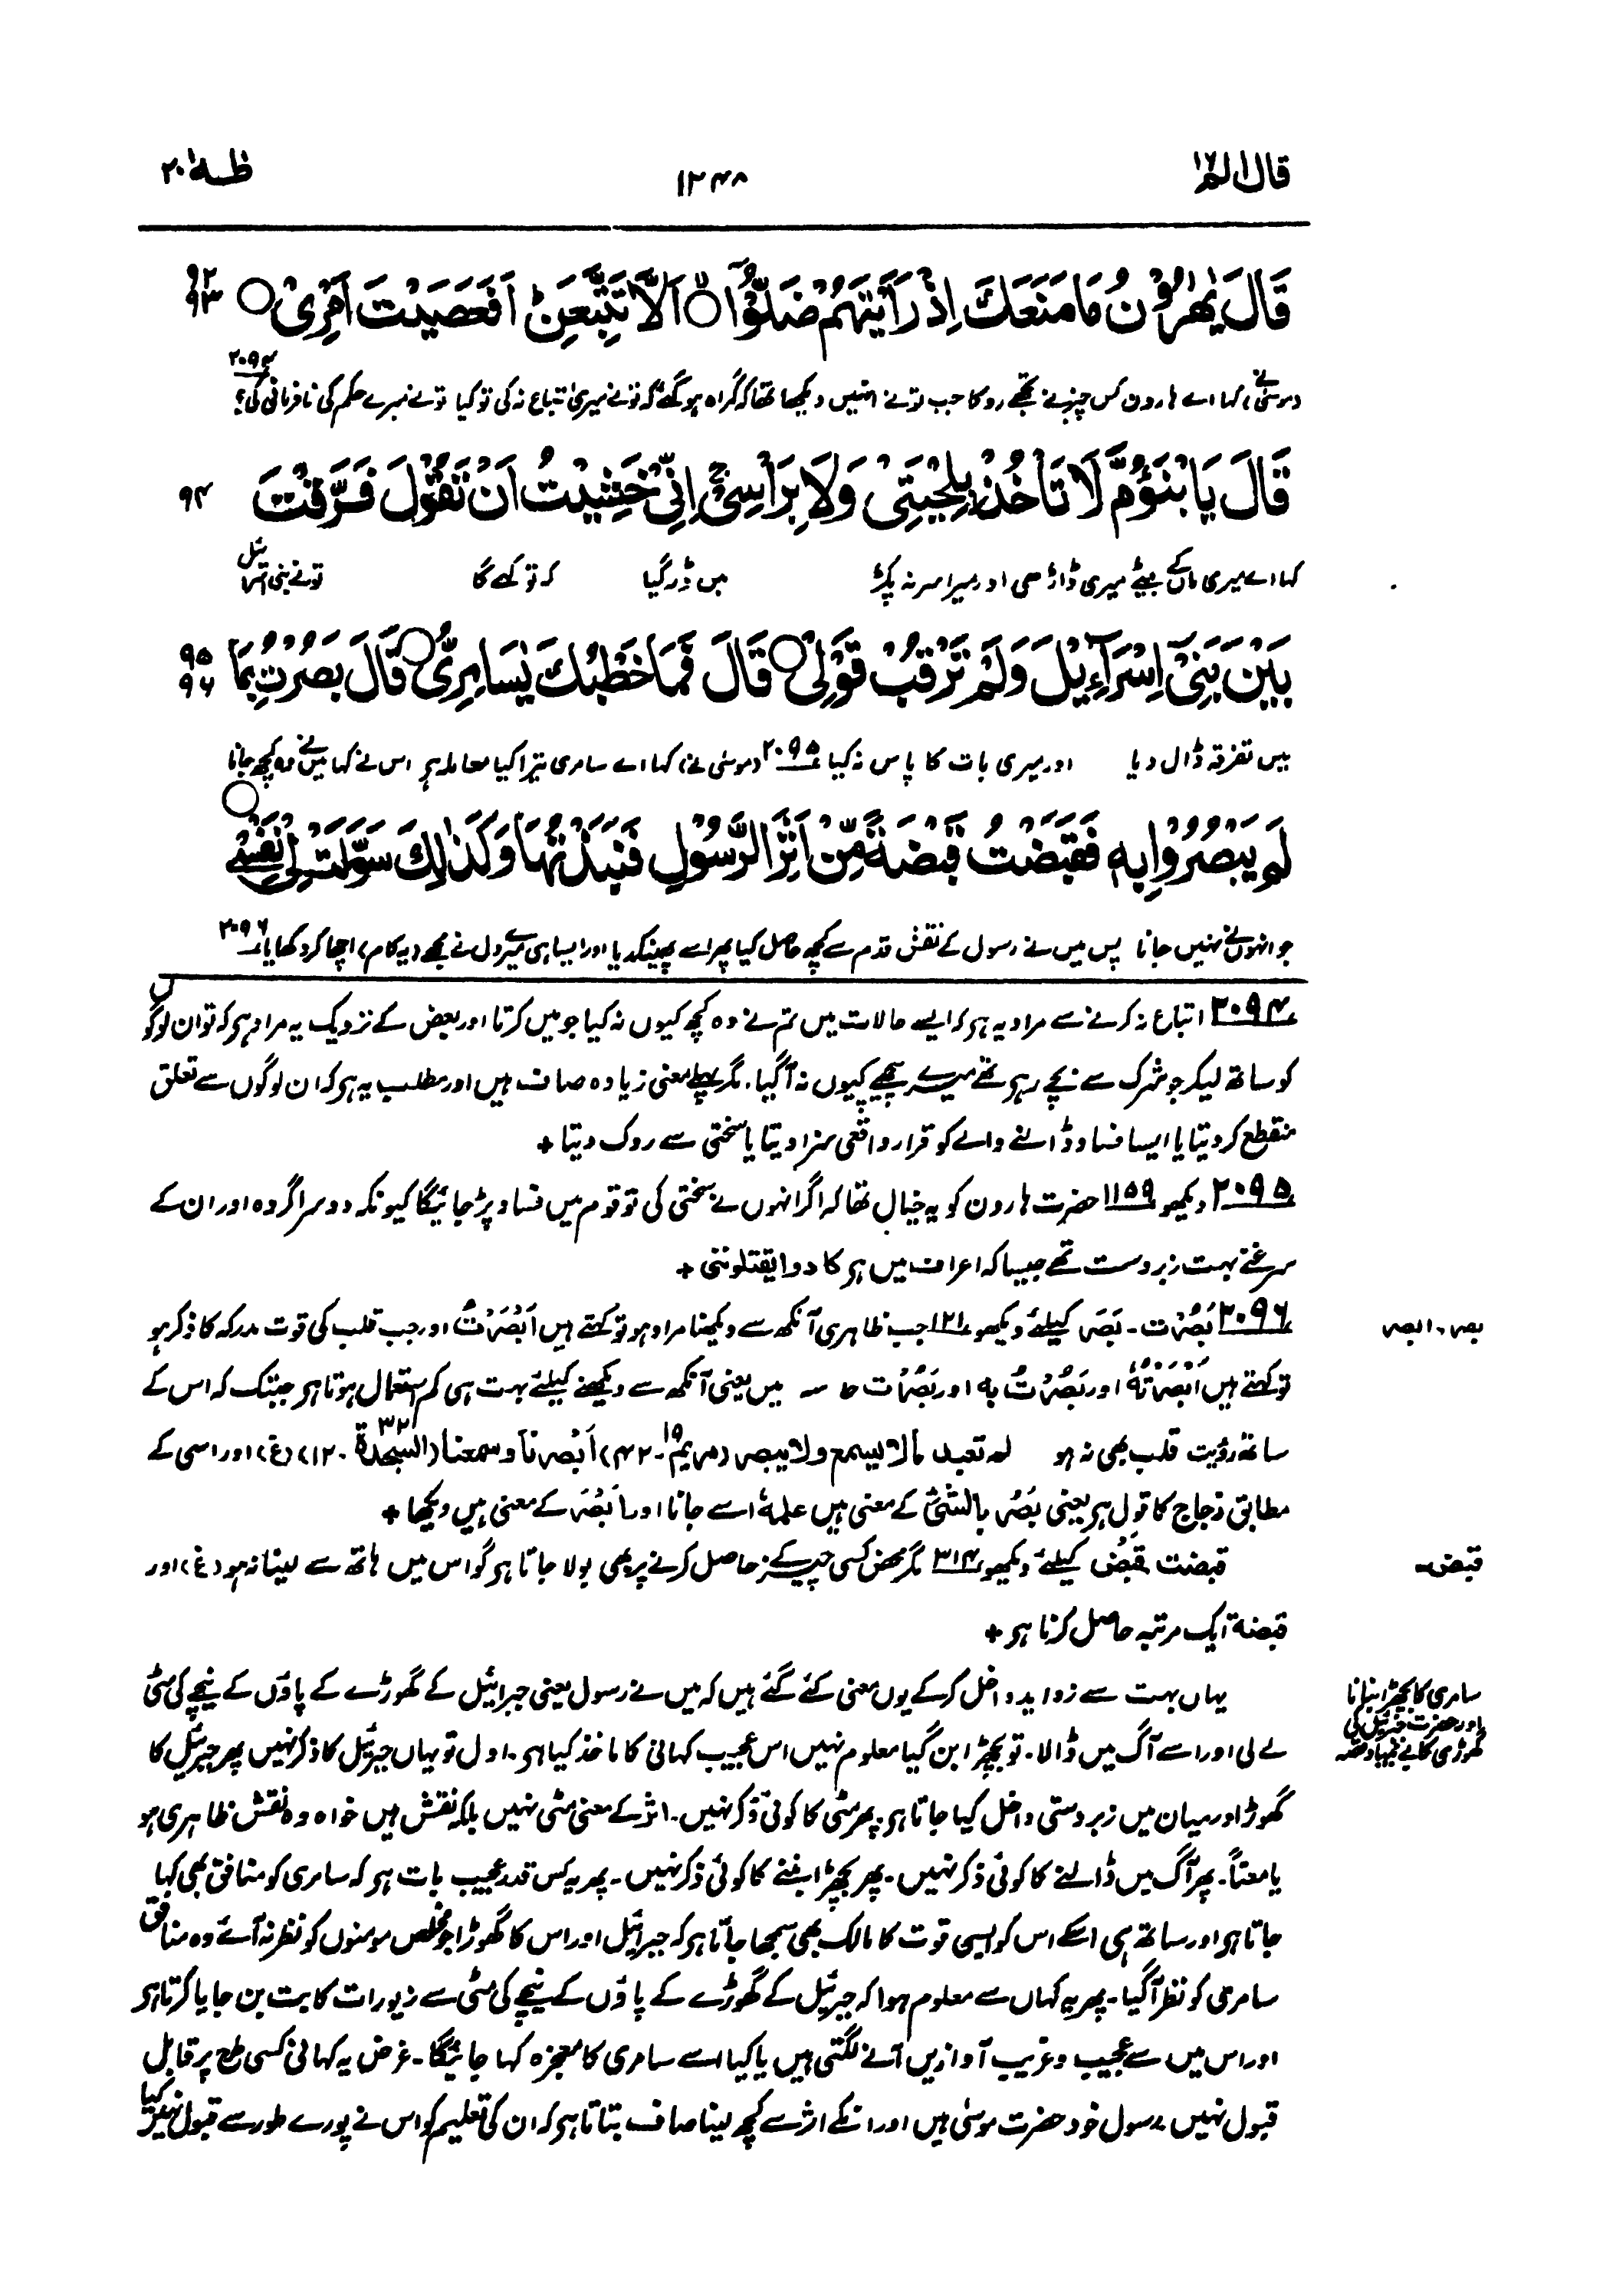 قال الم ١٦
١٢٤٨
طٰہٰ ٢٠
قَالَ يٰهٰرُوْنُ مَا مَنَعَكَ اِذْ رَاَيْتَهُمْ ضَلُّوْٓا ۙ اَلَّا تَتَّبِعَنِ ؕ اَفَعَصَيْتَ اَمْرِىْ
٩٢
٩٣
(موسیٰ نے) کہا اے ہارون کس چیز نے تجھے روکا جب تو نے انہیں دیکھا تھا کہ گمراہ ہو گئے کہ تو نے میری اتباع نہ کی تو کیا تو نے میرے حکم کی نافرمانی کی؟ ٢٠٩٤
قَالَ يَا بْنَؤُمَّ لَا تَاْخُذْ بِلِحْيَتِىْ وَلَا بِرَاْسِىْ ۚ اِنِّىْ خَشِيْتُ اَنْ تَقُوْلَ فَرَّقْتَ
٩٤
کہا اے میری ماں کے بیٹے میری ڈاڑھی اور میرا سر نہ پکڑ میں ڈر گیا کہ تو کہے گا تو نے بنی اسرائیل
بَيْنَ بَنِىْٓ اِسْرَآءِيْلَ وَلَمْ تَرْقُبْ قَوْلِىْ قَالَ فَمَا خَطْبُكَ يٰسَامِرِىُّ قَالَ بَصُرْتُ بِمَا
٩٥
٩٦
میں تفرقہ ڈال دیا اور میری بات کا پاس نہ کیا ٢٠٩٥ (موسیٰ نے) کہا اے سامری تیرا کیا معاملہ ہے اس نے کہا میں نے وہ کچھ جانا
لَمْ يَبْصُرُوْا بِهٖ فَقَبَضْتُ قَبْضَةً مِّنْ اَثَرِ الرَّسُوْلِ فَنَبَذْتُهَا وَكَذٰلِكَ سَوَّلَتْ لِىْ نَفْسِىْ
جو انہوں نے نہیں جانا پس میں نے رسول کے نقش قدم سے کچھ حاصل کیا پھر اسے پھینکدیا اور ایسا ہی میرے دل نے مجھے (یہ کام) اچھا کر دکھایا ٢٠٩٦
٢٠٩٤ اتباع نہ کرنے سے مراد یہ ہے کہ ایسے حالات میں تم نے وہ کچھ کیوں نہ کیا جو میں کرتا اور بعض کے نزدیک یہ مراد ہے کہ تو ان لوگوں
کو ساتھ لیکر جو شرک سے بچے رہے تھے میرے پیچھے کیوں نہ آگیا۔ مگر پہلے معنی زیادہ صاف ہیں اور مطلب یہ ہے کہ ان لوگوں سے تعلق
منقطع کر دیتا یا ایسا فساد ڈالنے والے کو قرار واقعی سزا دیتا یا سختی سے روک دیتا +
٢٠٩٥ دیکھو ١١٥٩ حضرت ہارون کو یہ خیال تھا کہ اگر انہوں نے سختی کی تو قوم میں فساد پڑ جائیگا کیونکہ دوسرا گروہ اور ان کے
سرغنے بہت زبردست تھے جیسا کہ اعراف میں ہے کادوا یقتلوننی +
٢٠٩٦ بَصُرْت۔ بَصَر کیلئے دیکھو ١٢١ جب ظاہری آنکھ سے دیکھنا مراد ہو تو کہتے ہیں اَبْصَرْتُ اور جب قلب کی قوت مدرکہ کا ذکر ہو
بصر۔ ابصر
تو کہتے ہیں اَبْصَرْتُهٗ اور بَصُرْتُ بِه اور بَصُرْت حاسہ میں یعنی آنکھ سے دیکھنے کیلئے بہت ہی کم استعمال ہوتا ہے جبتک کہ اس کے
ساتھ رؤیت قلب بھی نہ ہو لم تعبد مالا یسمع ولا یبصر (مریم ١٩۔٤٢) اَبْصرنا وسمعنا (السجدة ٣٢۔١٢) (غ) اور اسی کے
مطابق زجاج کا قول ہے یعنی بَصُر بالشئ کے معنی ہیں علمهٗ اسے جانا اور اَبْصَر کے معنی ہیں دیکھا +
قبضت قبض کیلئے دیکھو ٣١٤ مگر محض کسی چیز کے حاصل کرنے پر بھی بولا جاتا ہے گو اس میں ہاتھ سے لینا نہ ہو (غ) اور
قبض۔
قبضة ایک مرتبہ حاصل کرنا ہے +
یہاں بہت سے زواید داخل کرکے یوں معنی کئے گئے ہیں کہ میں نے رسول یعنی جبرائیل کے گھوڑے کے پاؤں کے نیچے کی مٹی
سامری کا بچھڑا بنانا
اور حضرت جبرئیل کی
گھوڑی کا بے بنیاد قصہ
لے لی اور اسے آگ میں ڈالا۔ تو بچھڑا بن گیا معلوم نہیں اس عجیب کہانی کا ماخذ کیا ہے۔ اول تو یہاں جبرئیل کا ذکر نہیں پھر جبرئیل کا
گھوڑا درمیان میں زبردستی داخل کیا جاتا ہے۔ پھر مٹی کا کوئی ذکر نہیں۔ اثر کے معنی مٹی نہیں بلکہ نقش ہیں خواہ وہ نقش ظاہری ہو
یا معناً۔ پھر آگ میں ڈالنے کا کوئی ذکر نہیں۔ پھر بچھڑا بننے کا کوئی ذکر نہیں۔ پھر یہ کس قدر عجیب بات ہے کہ سامری کو منافق بھی کہا
جاتا ہے اور ساتھ ہی اسکے اس کو ایسی قوت کا مالک بھی سمجھا جاتا ہے کہ جبرائیل اور اس کا گھوڑا جو مخلص مومنوں کو نظر نہ آئے وہ منافق
سامری کو نظر آگیا۔ پھر یہ کہاں سے معلوم ہوا کہ جبرئیل کے گھوڑے کے پاؤں کے نیچے کی مٹی سے زیورات کا بت بن جایا کرتا ہے
اور اس میں سے عجیب و غریب آوازیں آنے لگتی ہیں یا کیا اسے سامری کا معجزہ کہا جائیگا۔ غرض یہ کہانی کسی طرح پر قابل
قبول نہیں رسول خود حضرت موسیٰ ہیں اور انکے اثر سے کچھ لینا صاف بتاتا ہے کہ ان کی تعلیم کو اس نے پورے طور سے قبول نہیں کیا